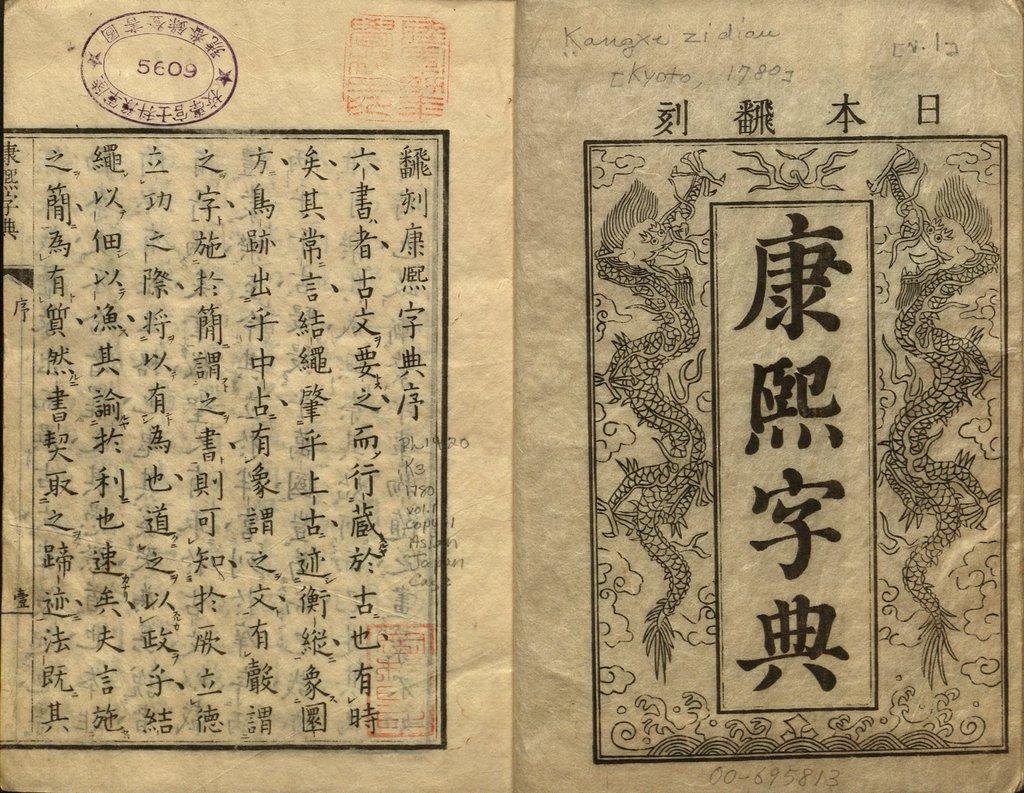 Kangxe zidian
[v.1]
[Kyoto, 1780]
日本飜刻
康熙字典
00-695813
5609
飜刻康熙字典序
六書者古文要之而行藏於古也有時
矣其常言結繩肇乎上古迹衡縱象圜
方鳥跡出乎中古有象謂之文有聲謂
之字施於簡謂之書則可知於厥立德
立功之際將以有為也道之以政乎結
繩以佃以漁其諭於利也速矣夫言施
之簡為有質然書契取之蹄迹法既其
康熙字典
序
壹
PL1420
K3
1780
vol.1
copy 1
Asian
Japan
Case